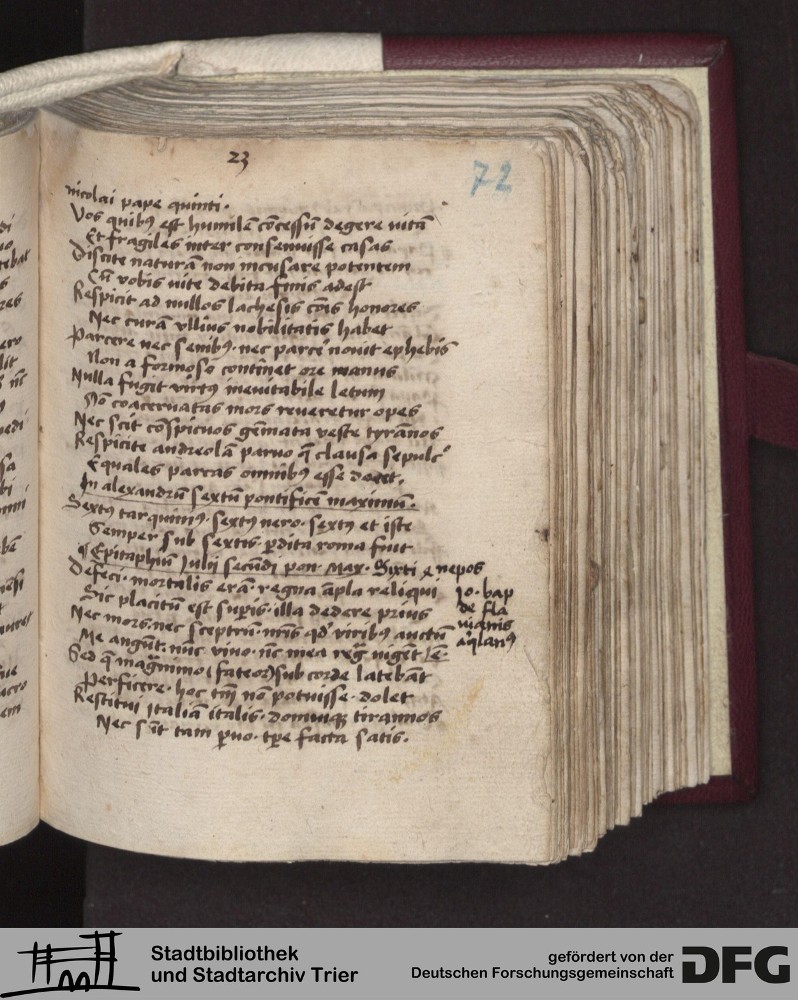 23
72
nicolai pape quinti.
Vos quibꝯ est humilē cōcessū degere vitā
Et fragiles inter consenuisse casas
Discite naturā non incusare potentem
Cū vobis vite debita finis adest
Respicit ad nullos lachesis cōis honores
Nec curā vllius nobilitatis habet
Parcere nec senibꝯ. nec parcē novit ephebis
Non a formoso continet ore manus
Nulla fugit virtꝯ ineuitabile letum
Nō coaceruatas mors reueretur opes
Nec scit cōspicuos gēmata veste tyrānos
Respicite andreolā paruo q̄ clausa sepulc̄
Equales parcas omnibꝯ esse docet.
In alexandrū sextū pontificē maximū.
Sextꝯ tarquiniꝯ. sextꝯ nero. sextꝯ et iste
Semper sub sextis ꝑdita roma fuit
Epitaphiū Iulii secūdi pon. Max. Sixti 4 nepos
Defeci. mortalis erā. regna āpla reliqui
Sic placitū est suꝑis. illa dedere prius
Nec mors. nec sceptrū. nr̄is qd' viribꝯ auctū
Me angūt. nūc viuo. nc̄ mea reḡ vigēt
Sed q̄ magnimo (fateor) sub corde latebāt
Perficere. hoc tm̄ nō potuisse. dolet
Restitui Italiā italis. domuiqꝫ tirannos
Nec sūt tam ꝑuo. tꝑe facta satis.
Io. bap
de fla
uianis
aq̄lanꝯ
Stadtbibliothek
und Stadtarchiv Trier
gefördert von der
Deutschen Forschungsgemeinschaft
DFG